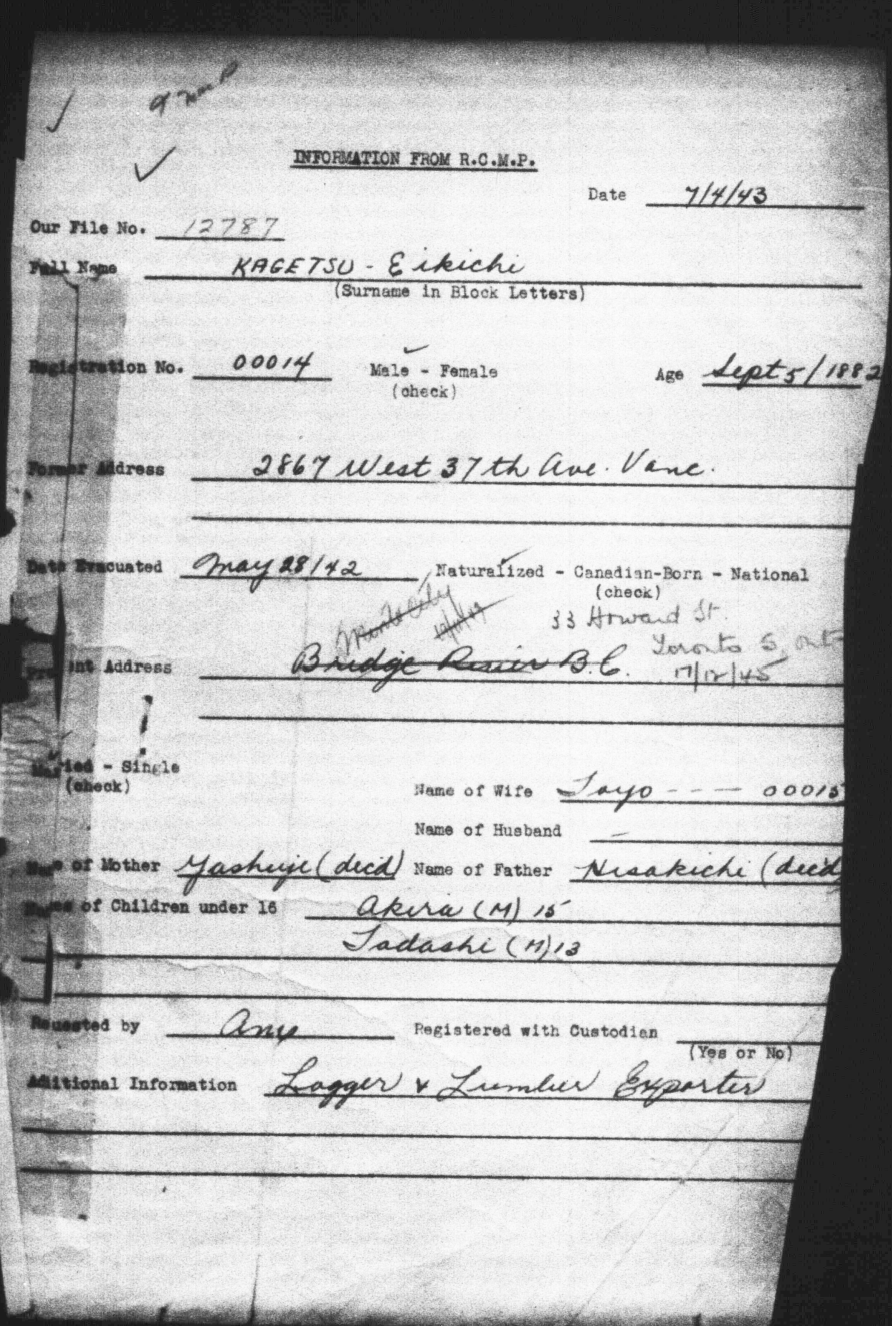 INFORMATION FROM R.C.M.P.
Date 7/4/43
Our File No. 12787
Full Name KAGETSU - Eikichi
(Surname in Block Letters)
Registration No. 00014 Male - Female Age Sept 5/1882
(check)
Former Address 2867 West 37th Ave. Vanc.
Date Evacuated May 28/42 Naturalized - Canadian-Born - National
(check)
Minto City 33 Howard St.
Toronto 5, Ont
Present Address Bridge River B.C. 17/12/45
Married - Single
(check)
Name of Wife Toyo - - - 00015
Name of Husband —
Name of Mother Yashuje (decd) Name of Father Hisakichi (decd)
Names of Children under 16 Akira (M) 15
Tadashi (M) 13
Requested by Registered with Custodian
(Yes or No)
Aditional Information Logger & Lumber Exporter